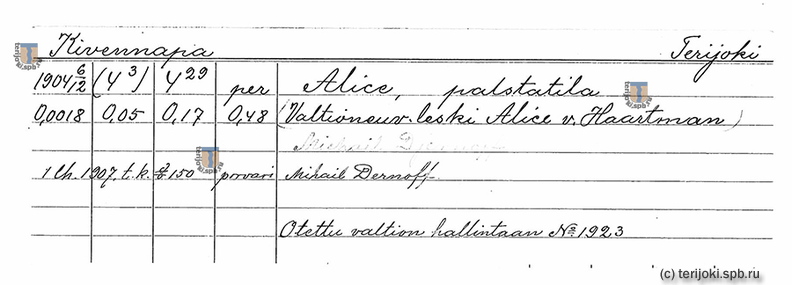 Kivennapa Terijoki
1904 6/12 (4³) 4²⁹ per Alice, palstatila
0,0018 0,05 0,17 0,48 (Valtioneuv. leski Alice v. Haartman)
Michail
1 lh. 1907. t. k. § 150 porvari Mihail Dernoff
Otettu valtion hallintaan № 1923
terijoki.spb.ru
terijoki.spb.ru
terijoki.spb.ru
(c) terijoki.spb.ru